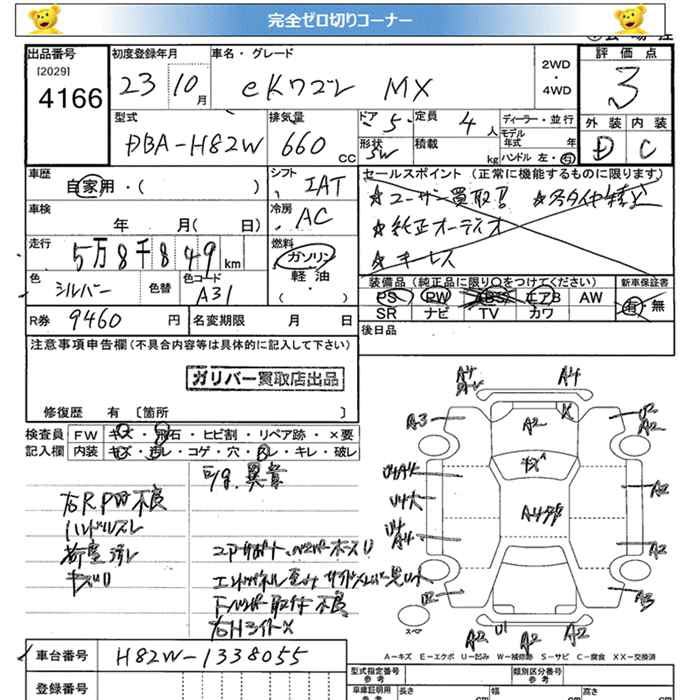 完全ゼロ切りコーナー
出品番号
[2029]
4166
初度登録年月
23 10月
車名・グレード
eKワゴン MX
2WD
・
4WD
評価点
3
外装 内装
D C
型式
DBA-H82W
排気量
660 cc
ドア 5
形状 5W
定員 4人
積載 kg
ディーラー・並行
モデル年式 年
ハンドル 左・右
車歴
自家用・( )
シフト
IAT
セールスポイント(正常に機能するものに限ります)
☆ユーザー買取!!
☆純正オーディオ
☆キーレス
車検
年 月( 日)
冷房
AC
走行
5万8千849 km
燃料
ガソリン
軽油
・
( )
色
シルバー
色替
色コード
A31
装備品(純正品に限り○をつけてください)
PS PW ABS エアB AW
SR ナビ TV カワ
新車保証書
有・無
R券 9460 円
名変期限 月 日
後日品
注意事項申告欄(不具合内容等は具体的に記入して下さい)
ガリバー買取店出品
修復歴 有 [箇所 ]
検査員
記入欄
FW キズ・飛石・ヒビ割・リペア跡・×要
内装 キズ・汚レ・コゲ・穴・ヌレ・キレ・破レ
E/g.異音
右RPW不良
ハンドルスレ
荷室汚レ
キズU
下ハンパー取付不良
右Hライト×
A4
A4
A3
A2
U2
A2
U4A4
U4
U4
A4
A2
A2
U2
A3
A2
U1
A2
A2
スペア
A-キズ E-エクボ U-凹み W-補修跡 S-サビ C-腐食 XX-交換済
車台番号 H82W-1338055
登録番号
型式指定番号
参考
類別区分番号
参考
車庫証明用
参考
長さ cm
幅 cm
高さ cm